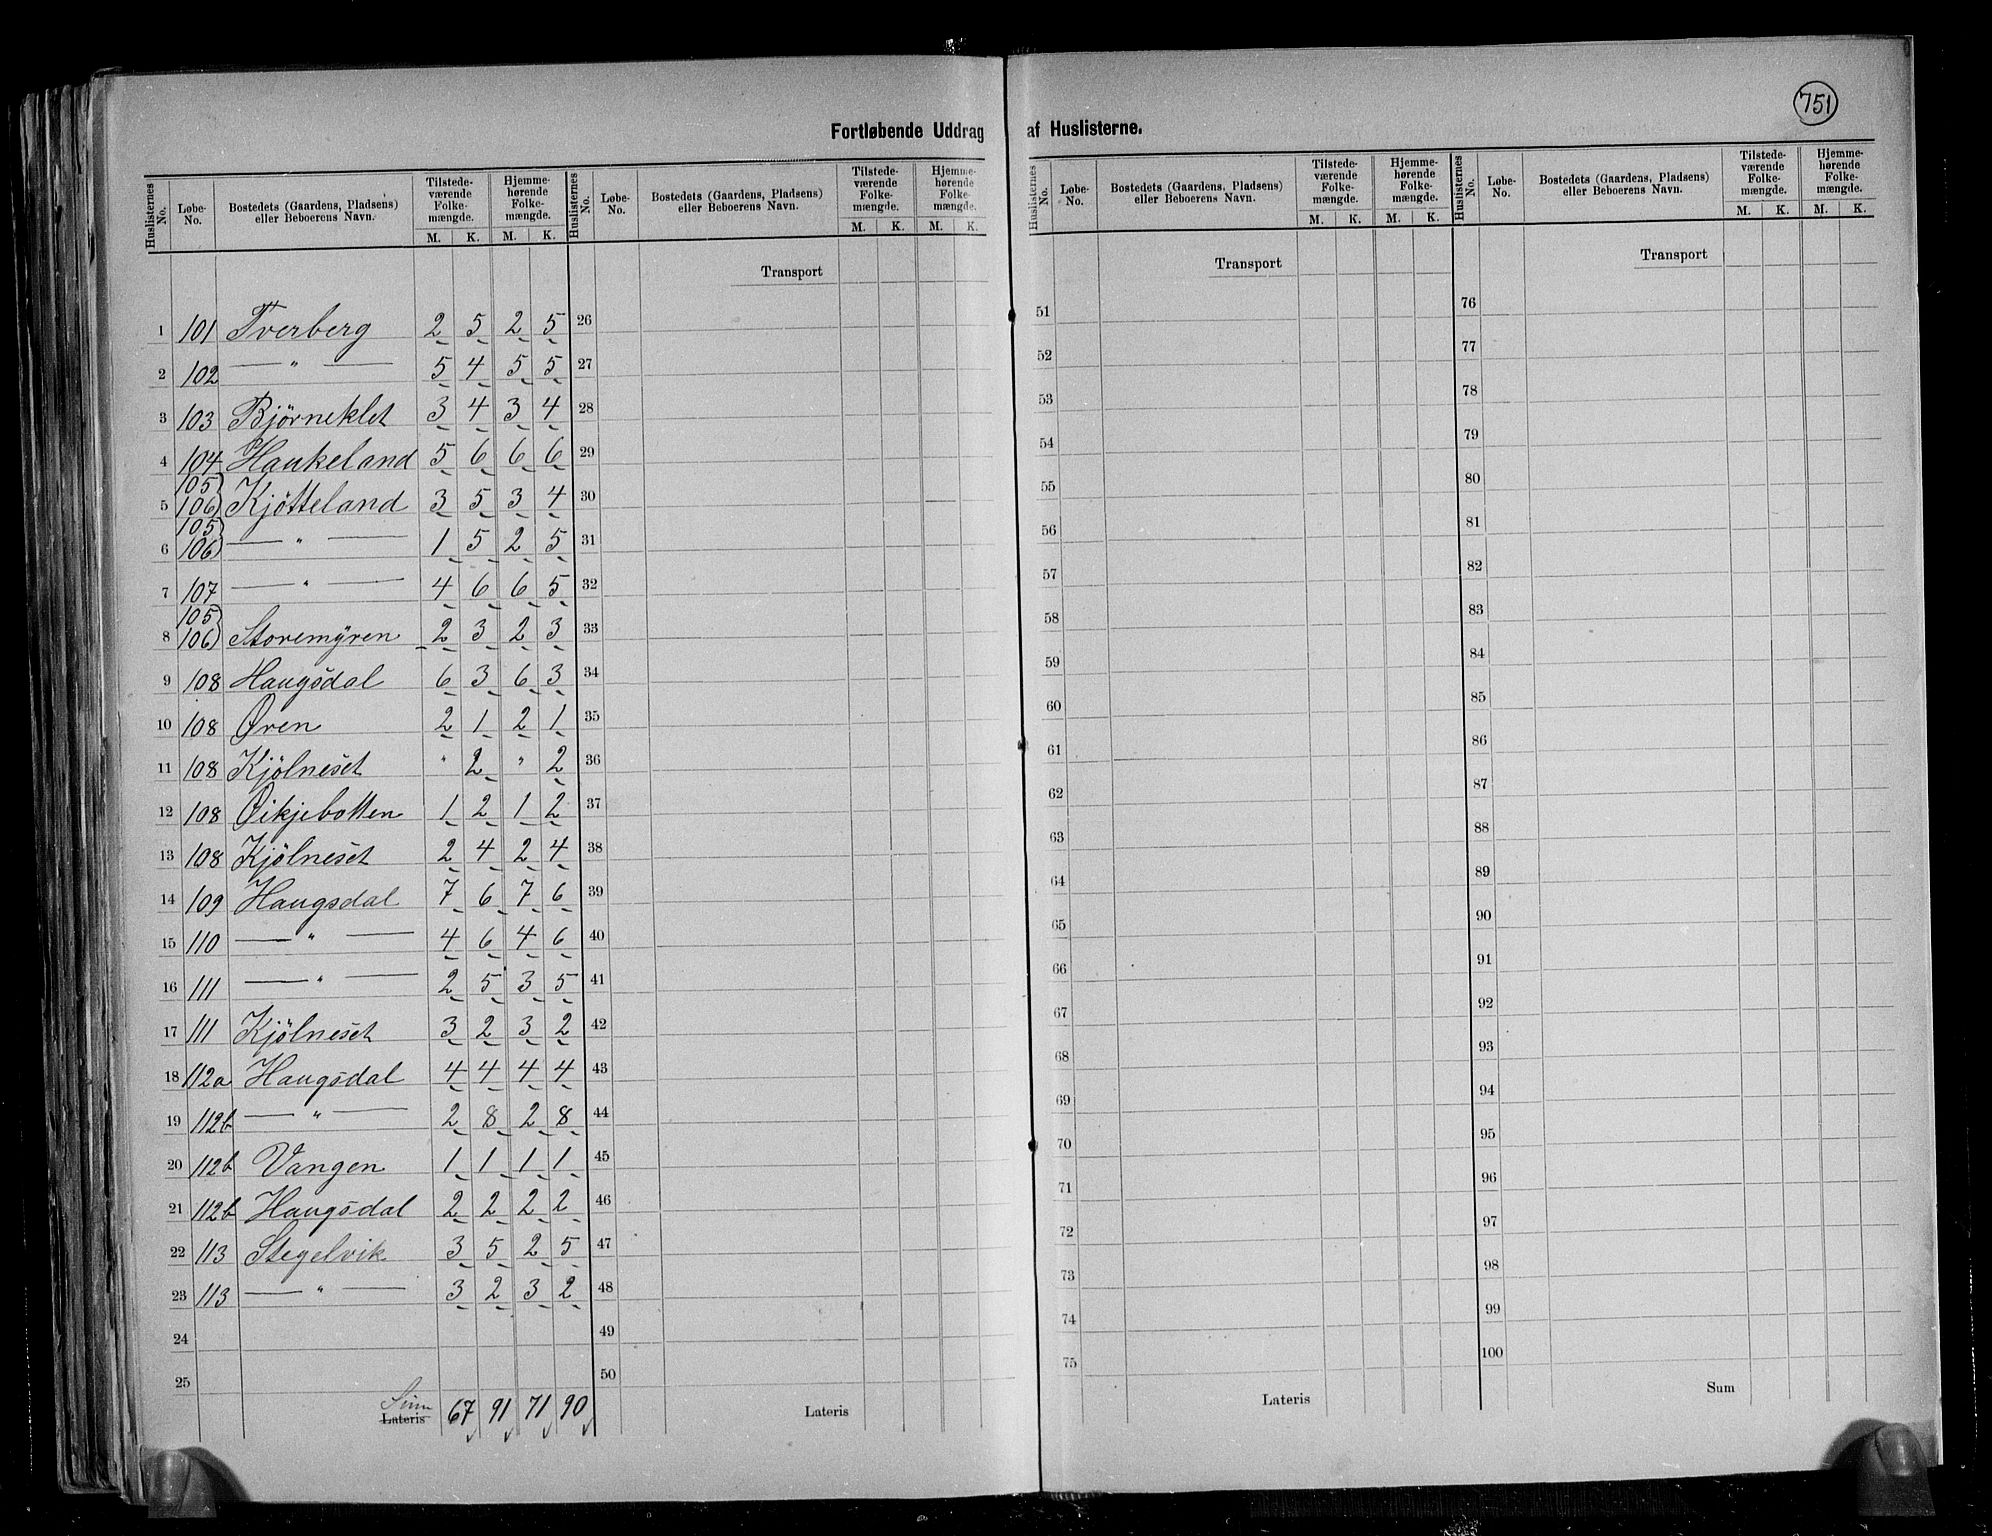 751
Fortløbende Uddrag af Huslisterne.
Huslisternes No. | Løbe-No. | Bostedets (Gaardens, Pladsens) eller Beboerens Navn. | Tilstedeværende Folkemængde. M. K. | Hjemmehørende Folkemængde. M. K.
Huslisternes No. | Løbe-No. | Bostedets (Gaardens, Pladsens) eller Beboerens Navn. | Tilstedeværende Folkemængde. M. K. | Hjemmehørende Folkemængde. M. K.
Huslisternes No. | Løbe-No. | Bostedets (Gaardens, Pladsens) eller Beboerens Navn. | Tilstedeværende Folkemængde. M. K. | Hjemmehørende Folkemængde. M. K.
Huslisternes No. | Løbe-No. | Bostedets (Gaardens, Pladsens) eller Beboerens Navn. | Tilstedeværende Folkemængde. M. K. | Hjemmehørende Folkemængde. M. K.
1 101 Tverberg 2 5 2 5
2 102 — " — 5 4 5 5
3 103 Bjørneklet 3 4 3 4
4 104 Haukeland 5 6 6 6
5 105) 106) Kjötteland 3 5 3 4
6 105) 106) — " — 1 5 2 5
7 107 — " — 4 6 6 5
8 105) 106) Storemyren 2 3 2 3
9 108 Haugsdal 6 3 6 3
10 108 Øren 2 1 2 1
11 108 Kjölneset " 2 " 2
12 108 Øikjebotten 1 2 1 2
13 108 Kjölneset 2 4 2 4
14 109 Haugsdal 7 6 7 6
15 110 — " — 4 6 4 6
16 111 — " — 2 5 3 5
17 111 Kjölneset 3 2 3 2
18 112a Haugsdal 4 4 4 4
19 112b — " — 2 8 2 8
20 112b Vangen 1 1 1 1
21 112b Haugsdal 2 2 2 2
22 113 Stegelvik 3 5 2 5
23 113 — " — 3 2 3 2
24
25
Sum
Lateris 67 91 71 90
Transport
26
27
28
29
30
31
32
33
34
35
36
37
38
39
40
41
42
43
44
45
46
47
48
49
50
Lateris
Transport
51
52
53
54
55
56
57
58
59
60
61
62
63
64
65
66
67
68
69
70
71
72
73
74
75
Lateris
Transport
76
77
78
79
80
81
82
83
84
85
86
87
88
89
90
91
92
93
94
95
96
97
98
99
100
Sum